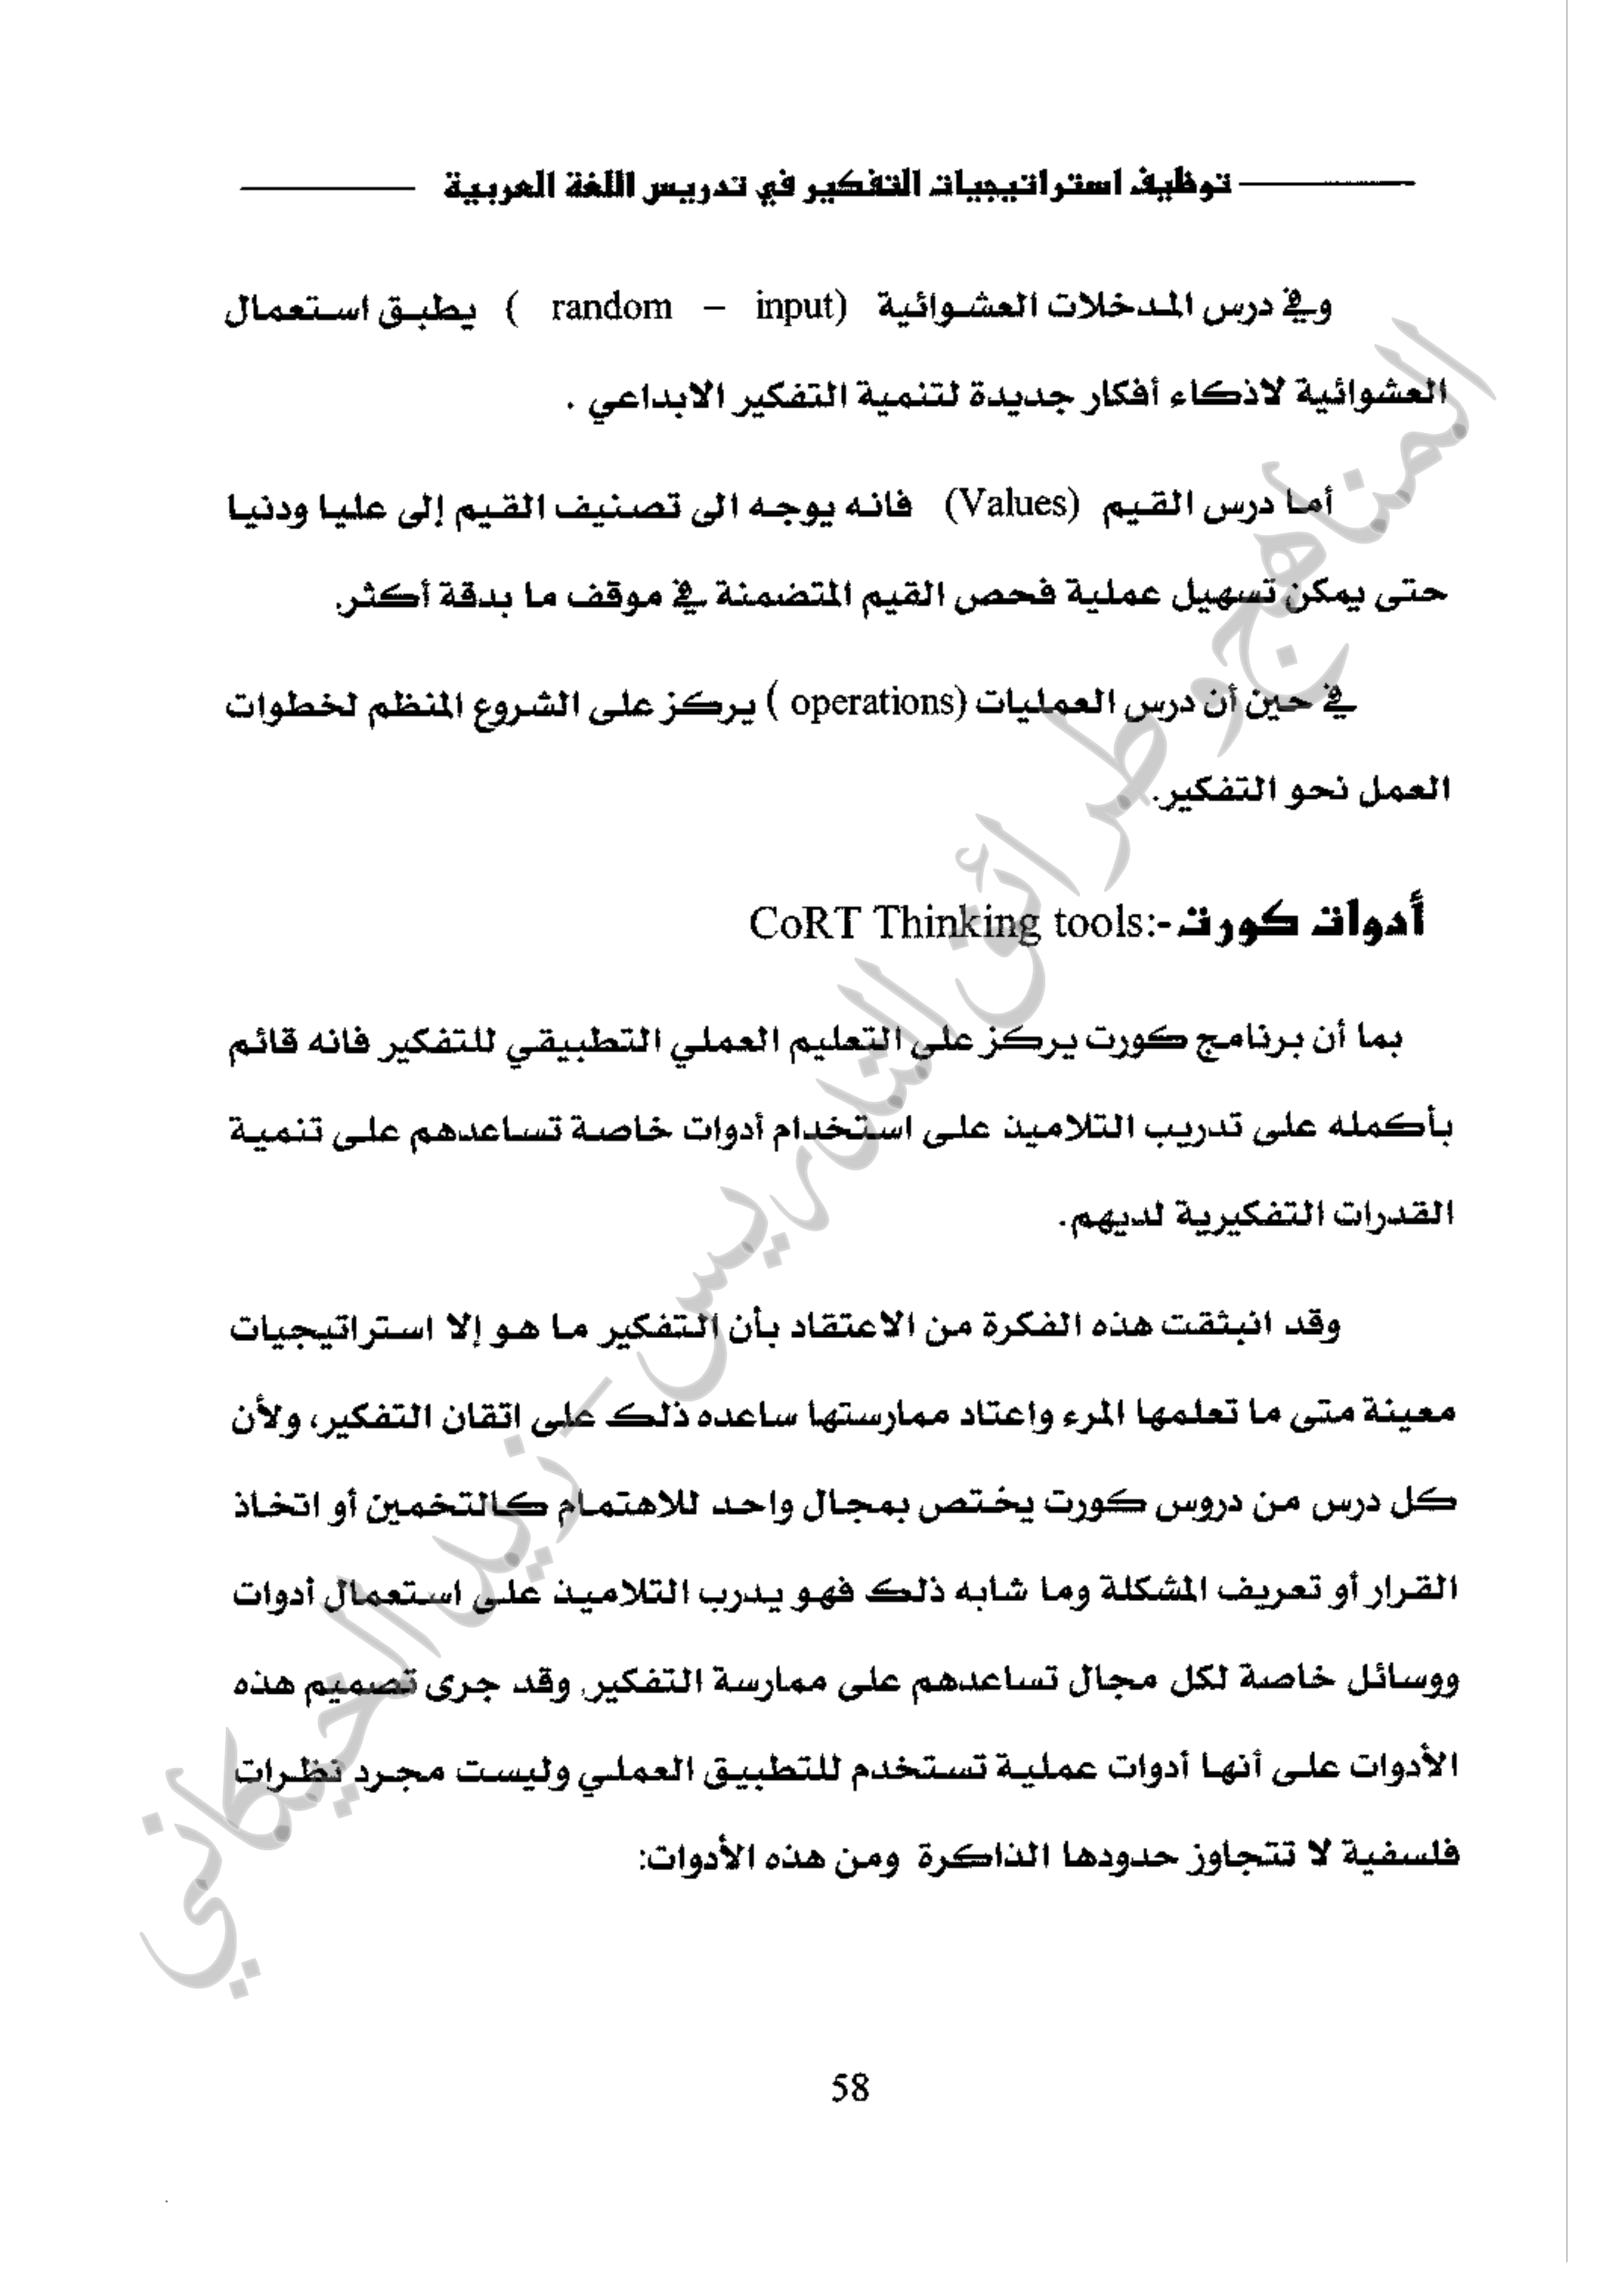 توظيف استراتيجيات التفكير في تدريس اللغة العربية
وفي درس المدخلات العشوائية (random – input) يطبق استعمال
العشوائية لاذكاء أفكار جديدة لتنمية التفكير الابداعي .
أما درس القيم (Values) فانه يوجه الى تصنيف القيم إلى عليا ودنيا
حتى يمكن تسهيل عملية فحص القيم المتضمنة في موقف ما بدقة أكثر.
في حين أن درس العمليات (operations) يركز على الشروع المنظم لخطوات
العمل نحو التفكير.
أدوات كورت -:CoRT Thinking tools
بما أن برنامج كورت يركز على التعليم العملي التطبيقي للتفكير فانه قائم
بأكمله على تدريب التلاميذ على استخدام أدوات خاصة تساعدهم على تنمية
القدرات التفكيرية لديهم.
وقد انبثقت هذه الفكرة من الاعتقاد بأن التفكير ما هو إلا استراتيجيات
معينة متى ما تعلمها المرء واعتاد ممارستها ساعده ذلك على اتقان التفكير، ولأن
كل درس من دروس كورت يختص بمجال واحد للاهتمام كالتخمين أو اتخاذ
القرار أو تعريف المشكلة وما شابه ذلك فهو يدرب التلاميذ على استعمال أدوات
ووسائل خاصة لكل مجال تساعدهم على ممارسة التفكير. وقد جرى تصميم هذه
الأدوات على أنها أدوات عملية تستخدم للتطبيق العملي وليست مجرد نظرات
فلسفية لا تتجاوز حدودها الذاكرة ومن هذه الأدوات:
58
المناهج وطرائق التدريس - زيد الخيكاني